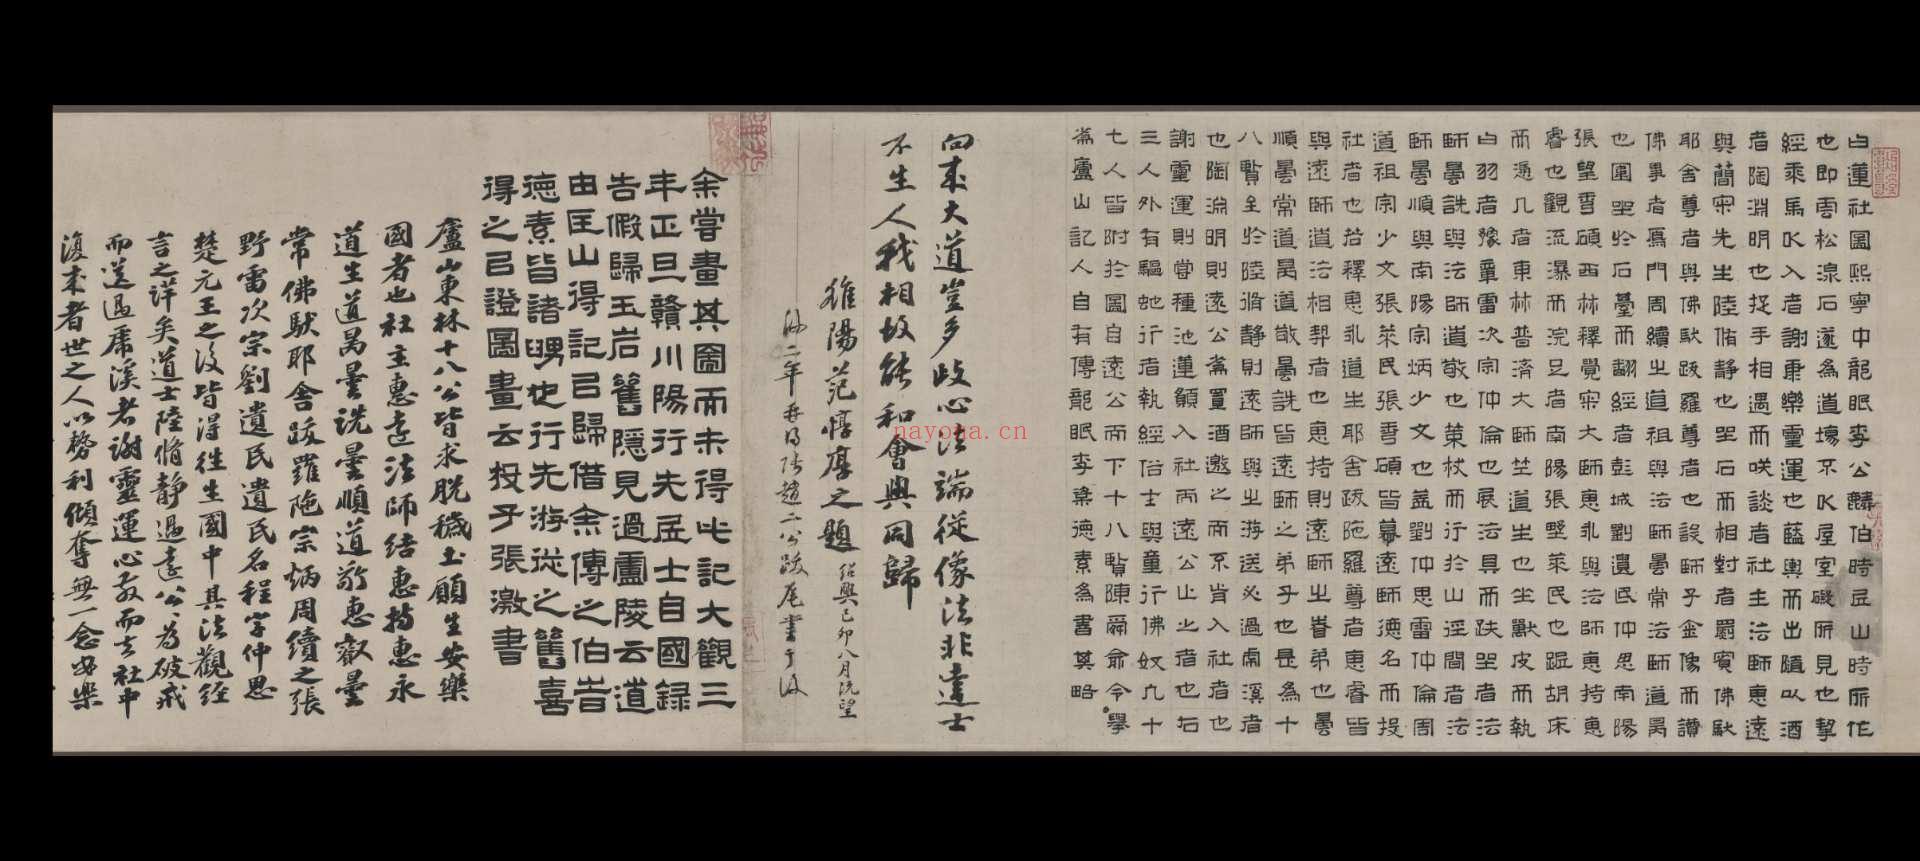 白蓮社圖熙寧中龍眠李公麟伯時居山時所作
也即雲松湶石遂為道塲不以屋室礙所見也挐
經乘馬以入者謝康樂靈運也藍輿而出隨以酒
者陶淵明也捉手相遇而咲談者社主法師惠遠
與蕳宗先生陸脩静也坐石而相對者罽賓佛馱
耶舍尊者與佛馱跋羅尊者也設師子金像而讚
佛事者鴈門周續之道祖與法師曇常法師道昺
也圍坐於石臺而翻經者彭城劉遺民仲思南陽
張望香碩西林釋覺宋大師惠永與法師惠持惠
睿也觀流瀑而浣足者南陽張埜萊民也踞胡床
而憑几者東林普濟大師竺道生也坐獸皮而執
白羽者豫章雷次宗仲倫也展法具而趺坐者法
師曇詵與法師道敬也策杖而行於山逕間者法
師曇順與南陽宗炳少文也蓋劉仲思雷仲倫周
道祖宗少文張萊民張香碩皆慕遠師德名而投
社者也若釋惠永道生耶舍跋陁羅尊者惠睿皆
與遠師道法相契者也惠持則遠師之眷弟也曇
順曇常道昺道敬曇詵皆遠師之弟子也是為十
八賢至於陸脩静則遠師與之游送必過虎溪者
也陶淵明則遠公為置酒邀之而不肯入社者也
謝靈運則嘗種池蓮願入社而遠公止之者也右
三人外有驅虵行者執經俗士與童行佛奴凢十
七人皆附於圖自遠公而下十八賢陳舜俞令舉
為廬山記人自有傳龍眠李粢德素為書其略
向來大道豈多歧心法端從像法非達士
不生人我相故能和會與同歸
雒陽范惇厚之題 紹興己卯八月沆望
年 張趙二公跋尾書于後
余嘗畫其圖而未得此記大觀三
年正旦贛川陽行先居士自國録
告假歸玉岩舊隱見過盧陵云道
由匡山得記已歸借余傳之伯旹
徳素皆諸甥也行先游從之舊喜
得之已證圖畫云投子張激書
廬山東林十八公皆求脱穢土願生安樂
國者也社主惠遠法師結惠持惠永
道生道昺曇詵曇順道敬惠叡曇
常佛馱耶舍跋羅陁宗炳周續之張
野雷次宗劉遺民遺民名程字仲思
楚元王之後皆得徃生國中其法觀經
言之詳矣道士陸脩静過遠公為破戒
而送過乕溪者謝靈運心亂而去社中
復來者世之人以勢利傾奪無一念安樂
nayona.cn